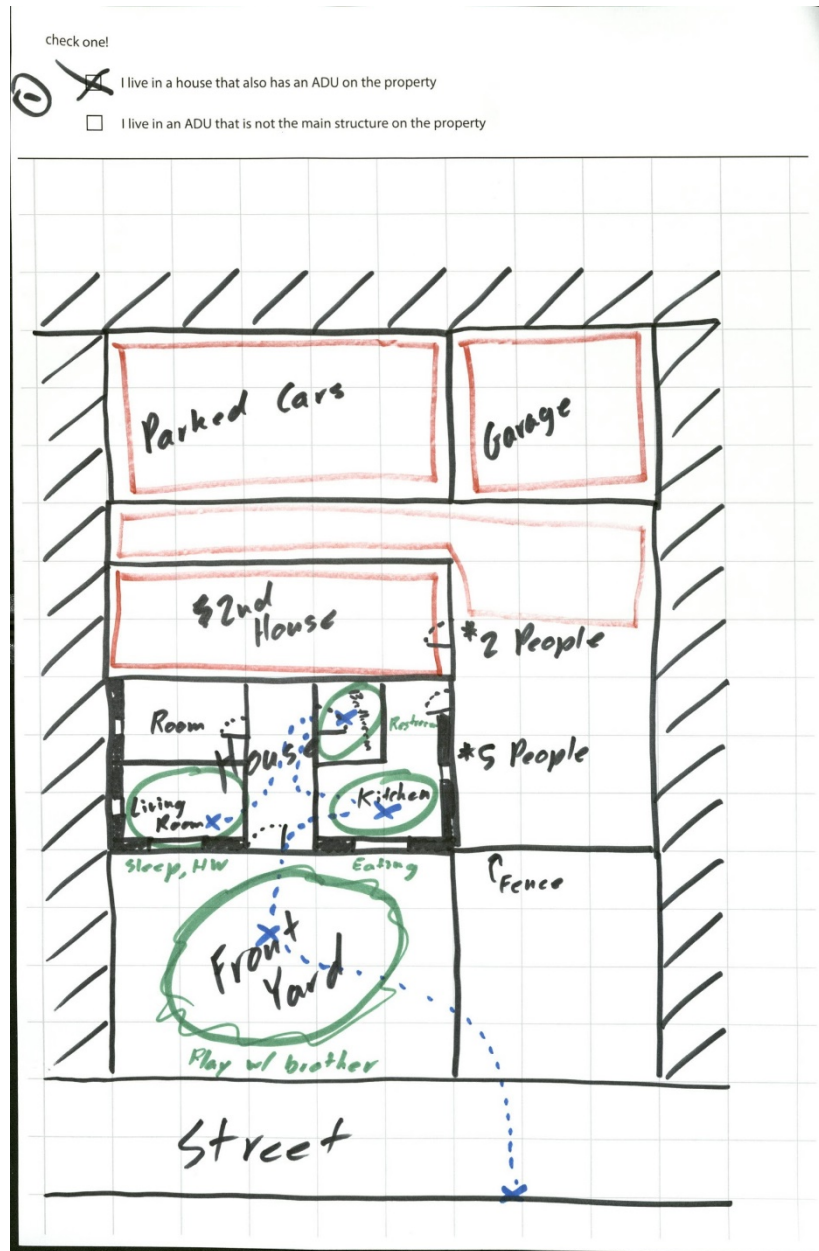 check one!
① I live in a house that also has an ADU on the property
I live in an ADU that is not the main structure on the property
Parked Cars
Garage
2nd
House
*2 People
Room
House
Bathroom
Restroom
*5 People
Living
Room
Kitchen
Sleep, HW
Eating
Fence
Front
Yard
Play w/ brother
Street